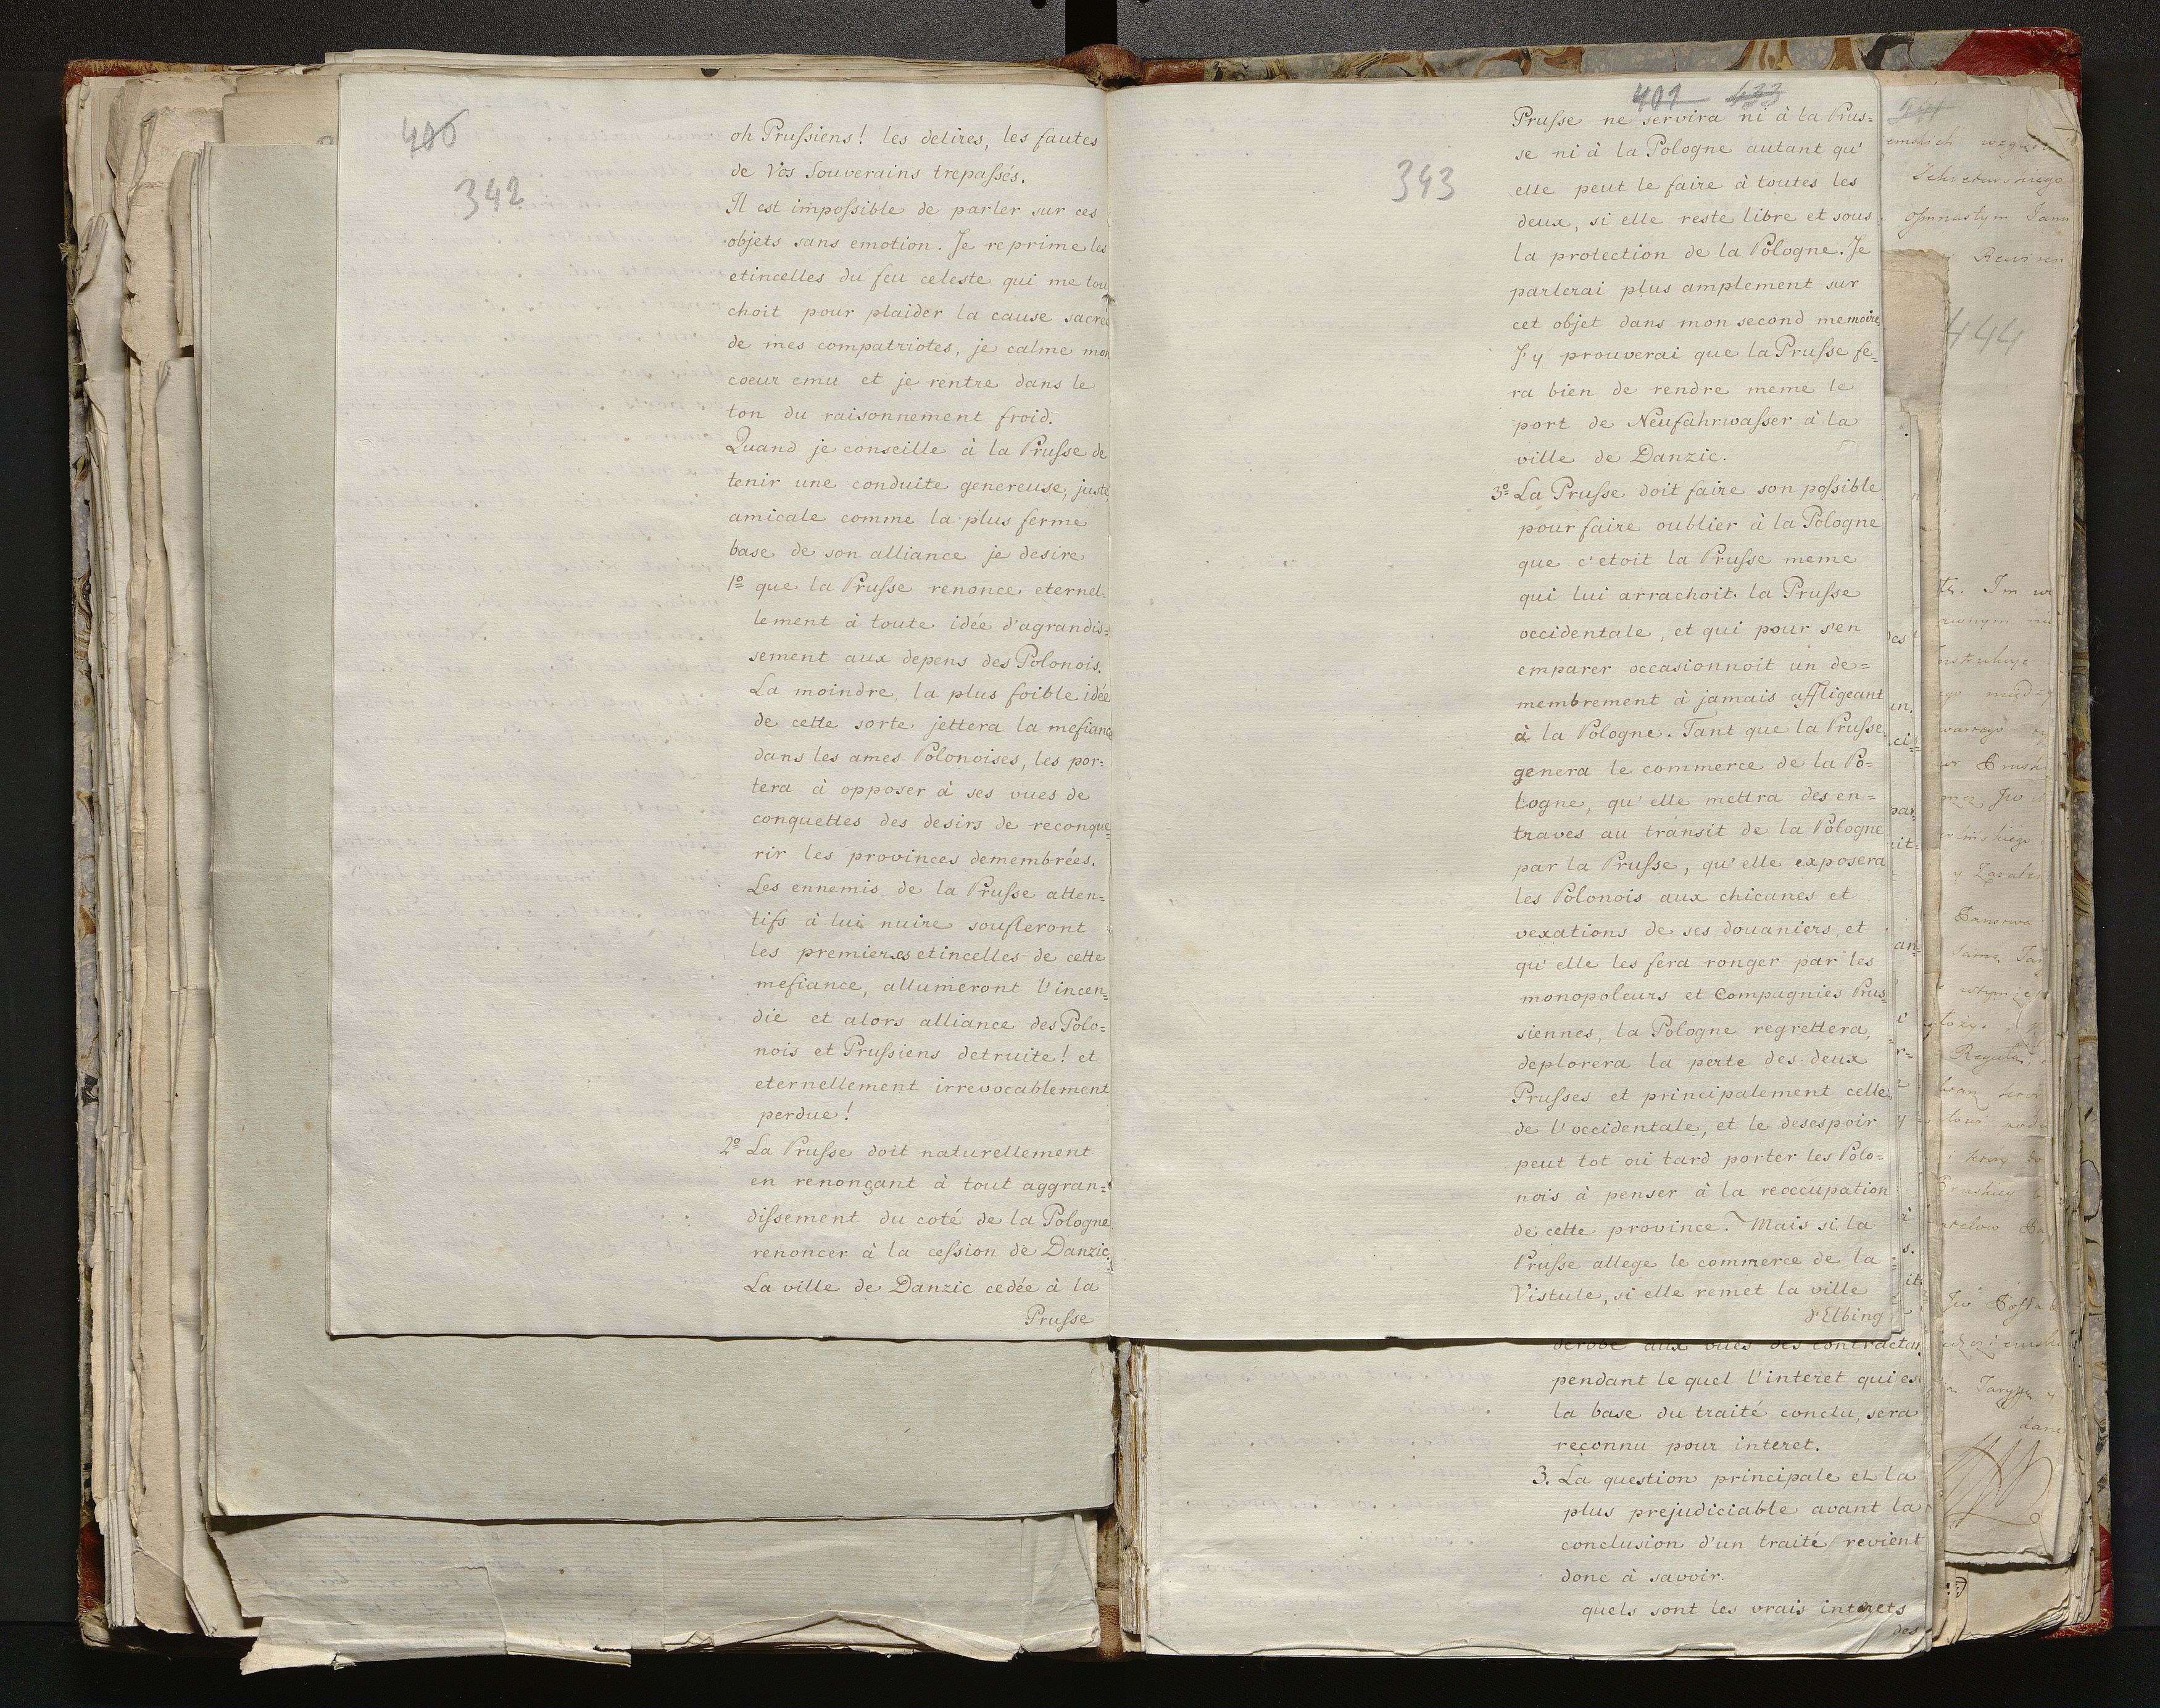 400
342
oh Prussiens! les delires, les fautes
de Vos Souverains trepassés.
Il est impossible de parler sur ces
objets sans emotion. Je reprime les
etincelles du feu celeste qui me tou
choit pour plaider la cause sacrée
de mes compatriotes, je calme mon
coeur emu et je rentre dans le
ton du raisonnement froid.
Quand je conseille à la Prusse de
tenir une conduite genereuse, juste,
amicale comme la plus ferme
base de son alliance je desire
1º que la Prusse renonce eternel=
lement à toute idée d'agrandis=
sement aux depens des Polonois.
La moindre, la plus foible idée
de cette sorte jettera la mefiance
dans les ames Polonoises, les por=
tera à opposer à ses vues de
conquettes des desirs de reconque=
rir les provinces demembrées.
Les ennemis de la Prusse atten=
tifs à lui nuire soufleront
les premieres etincelles de cette
mefiance, allumeront l'incen=
die et alors alliance des Polo=
nois et Prussiens detruite! et
eternellement irrevocablement
perdue!
2º La Prusse doit naturellement
en renonçant à tout aggran=
dissement du coté de la Pologne
renoncer à la cession de Danzic.
La ville de Danzic cedée à la
Prusse
401 433
343
Prusse ne servira ni à la Prus=
se ni à la Pologne autant qu'
elle peut le faire à toutes les
deux, si elle reste libre et sous
la protection de la Pologne. Je
parlerai plus amplement sur
cet objet dans mon second memoire.
J'y prouverai que la Prusse fe=
ra bien de rendre meme le
port de Neufahrwasser à la
ville de Danzic.
3º La Prusse doit faire son possible
pour faire oublier à la Pologne
que c'etoit la Prusse meme
qui lui arrachoit la Prusse
occidentale, et qui pour s'en
emparer occasionnoit un de=
membrement à jamais affligeant
à la Pologne. Tant que la Prusse
genera le commerce de la Po=
logne, qu'elle mettra des en=
traves au transit de la Pologne
par la Prusse, qu'elle exposera
les Polonois aux chicanes et
vexations de ses douaniers, et
qu'elle les fera ronger par les
monopoleurs et Compagnies Prus=
siennes, la Pologne regrettera,
deplorera la perte des deux
Prusses et principalement celle
de l'occidentale, et le desespoir
peut tot ou tard porter les Polo=
nois à penser à la reoccupation
de cette province. Mais si la
Prusse allege le commerce de la
Vistule, si elle remet la ville
d'Elbing
derobe aux vues des contractan
pendant le quel l'interet qui es
la base du traité conclu, sera
reconnu pour interet.
3. La question principale et la
plus prejudiciable avant la
conclusion d'un traité revient
donc à savoir.
quels sont les vrais interets
des
444